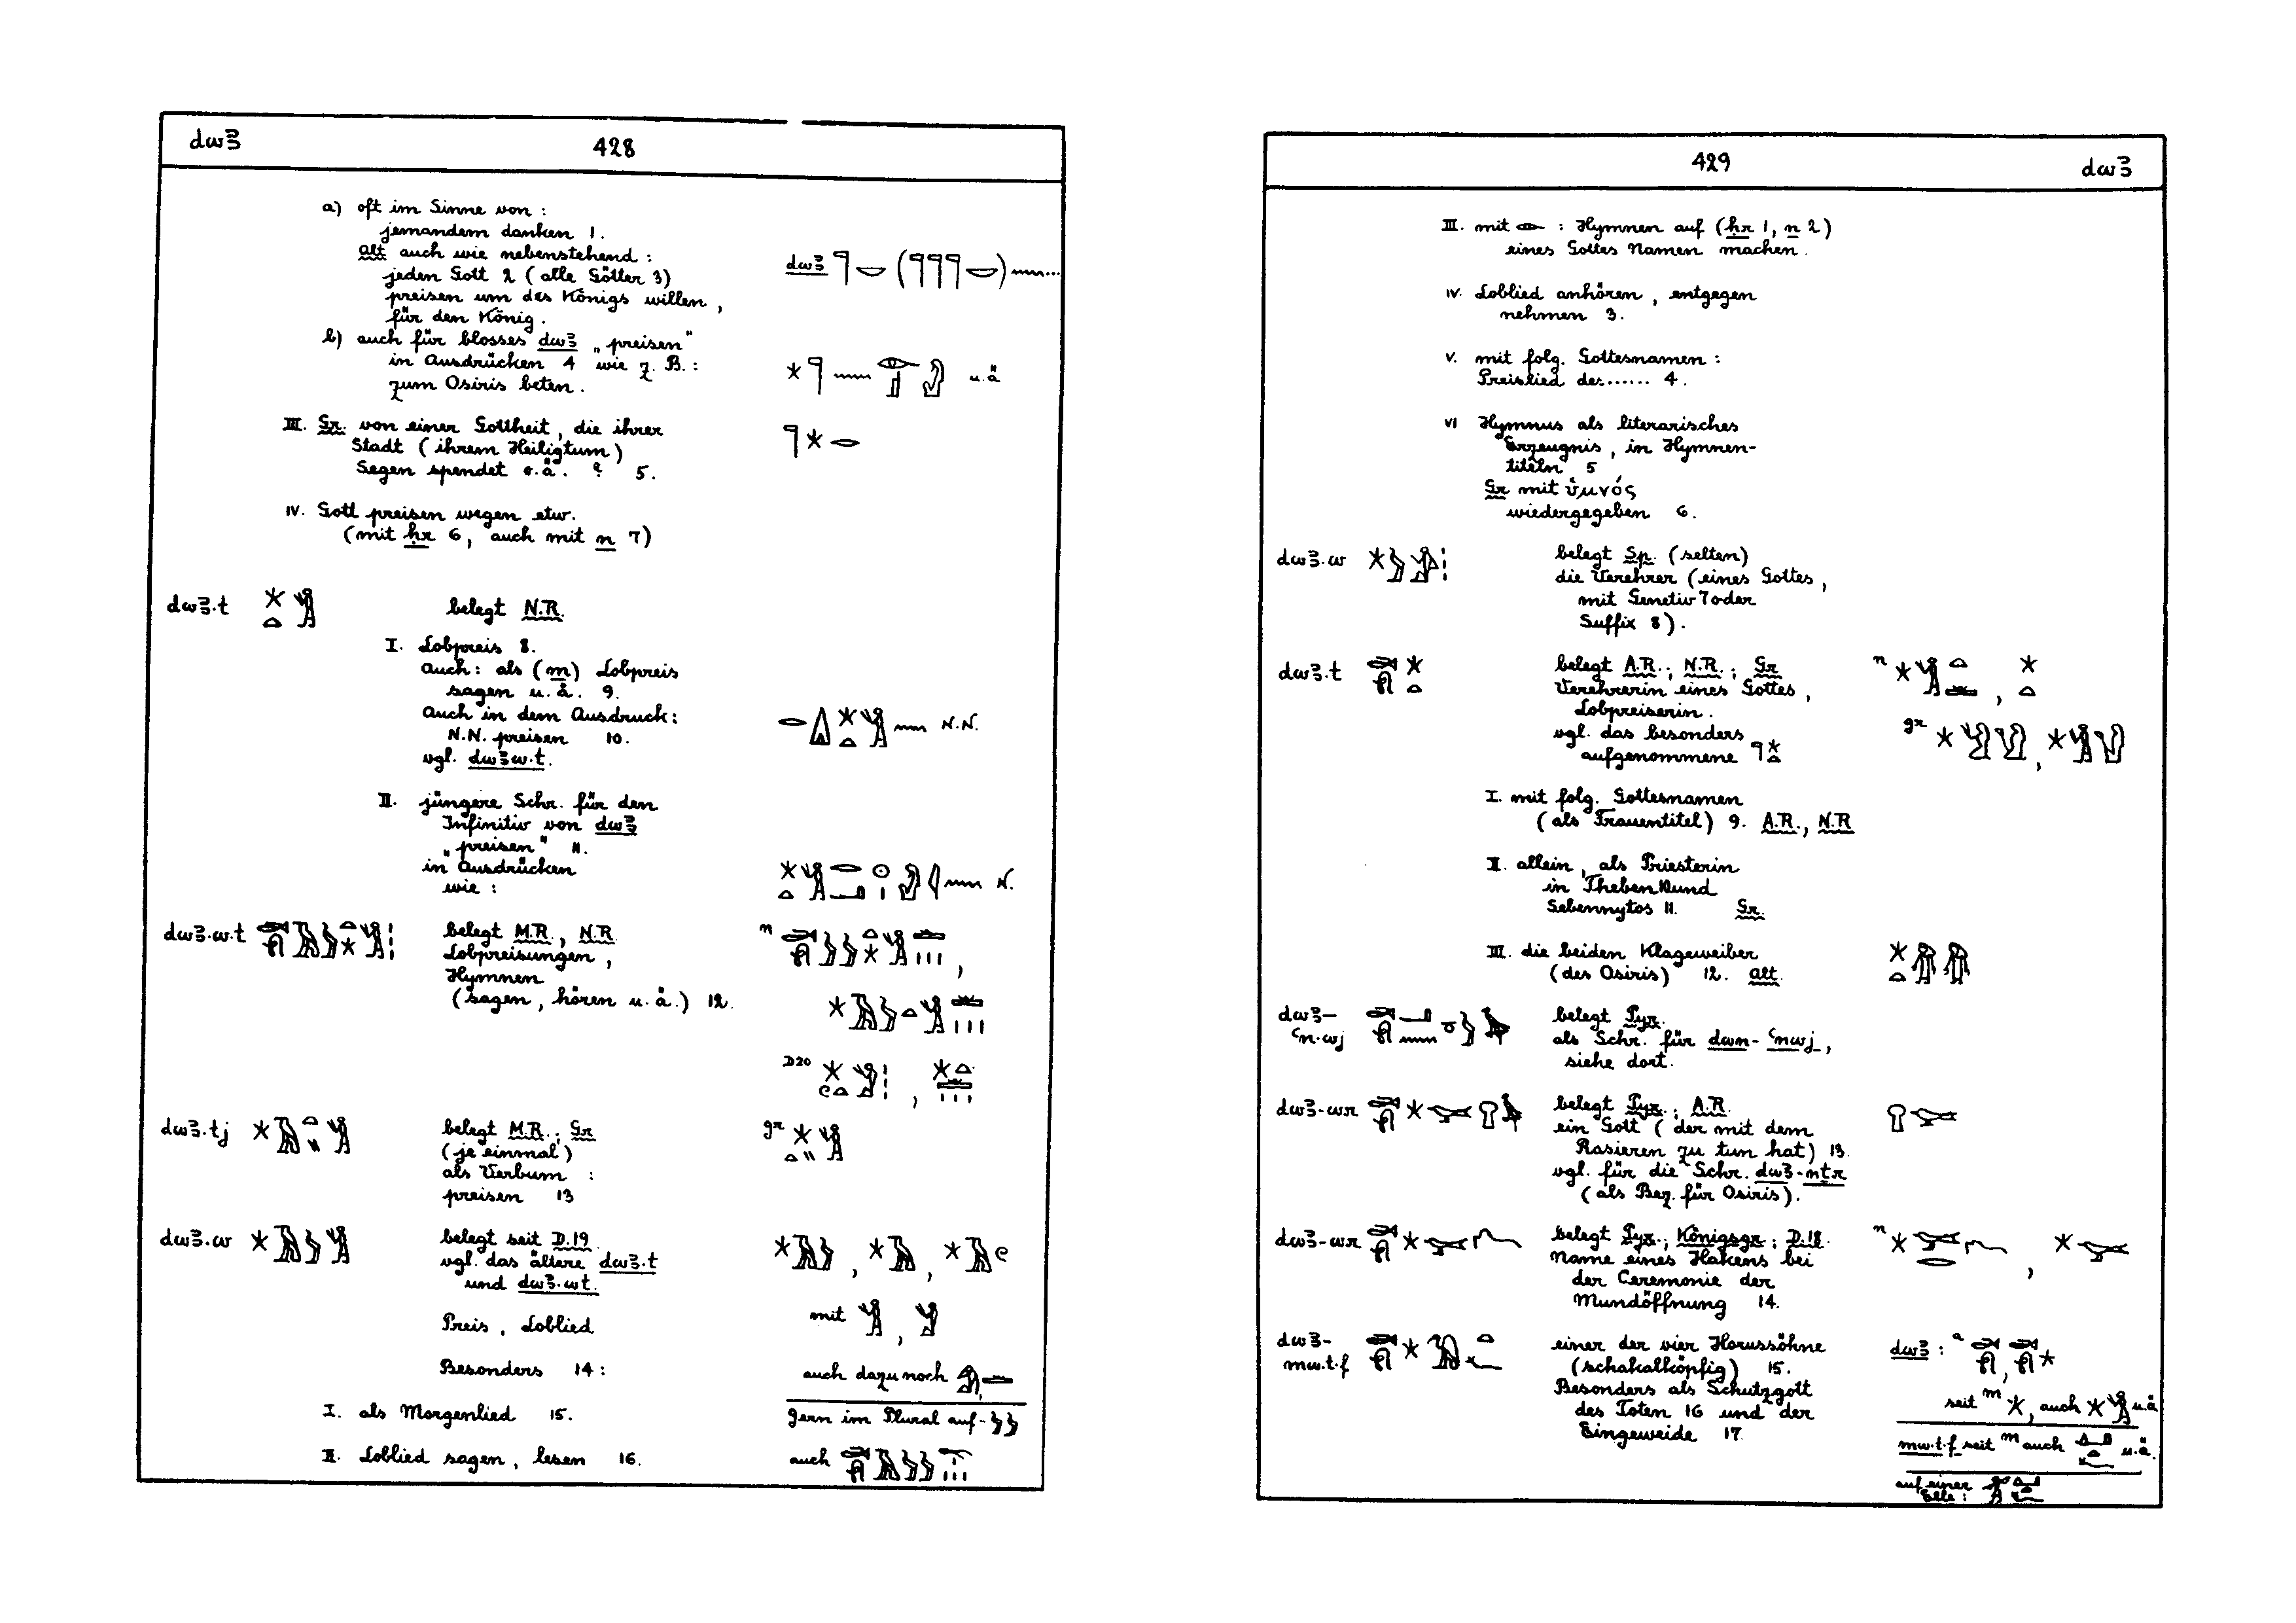 dwꜣ 428
a) oft im Sinne von :
jemandem danken 1.
Alt auch wie nebenstehend : dwꜣ
jeden Gott 2 ( alle Götter 3)
preisen um des Königs willen ,
für den König .
b) auch für blosses dwꜣ „ preisen "
in Ausdrücken 4 wie z. B. : u.ä
zum Osiris beten .
III. Gr. von einer Gottheit , die ihrer
Stadt ( ihrem Heiligtum )
Segen spendet o.ä. ? 5.
IV. Gott preisen wegen etw.
(mit ḥr 6, auch mit n 7)
dwꜣ.t belegt N.R.
I. Lobpreis 8.
Auch : als (m) Lobpreis
sagen u. ä. 9.
Auch in dem Ausdruck :
N.N. preisen 10. N.N.
vgl. dwꜣw.t.
II. jüngere Schr. für den
Infinitiv von dwꜣ
„ preisen " 11.
in Ausdrücken
wie : N.
dwꜣ.w.t belegt M.R., N.R. n
Lobpreisungen ,
Hymnen
(sagen , hören u. ä.) 12.
D20
dwꜣ.tj belegt M.R. ; Gr gr
(je einmal)
als Verbum :
preisen 13
dwꜣ.w belegt seit D.19
vgl. das ältere dwꜣ.t
und dwꜣ.wt.
Preis , Loblied mit
Besonders 14 : auch dazu noch
I. als Morgenlied 15. gern im Plural auf -
II. Loblied sagen , lesen 16. auch
429 dwꜣ
III. mit : Hymnen auf (ḥr 1, n 2)
eines Gottes Namen machen .
IV. Loblied anhören , entgegen
nehmen 3.
V. mit folg. Gottesnamen :
Preislied des ...... 4.
VI Hymnus als literarisches
Erzeugnis , in Hymnen-
titeln 5
Gr mit ὑμνός
wiedergegeben 6.
dwꜣ.w belegt Sp. (selten)
die Verehrer (eines Gottes ,
mit Genetiv 7 oder
Suffix 8) .
dwꜣ.t belegt A.R. ; N.R. ; Gr n
Verehrerin eines Gottes ,
Lobpreiserin .
vgl. das besonders gr
aufgenommene
I. mit folg. Gottesnamen
(als Frauentitel) 9. A.R., N.R
II. allein , als Priesterin
in Theben 10 und
Sebennytos 11. Gr.
III. die beiden Klageweiber
(des Osiris) 12. alt.
dwꜣ- belegt Pyr.
ꜥn.wj als Schr. für dwn - ꜥnwj ,
siehe dort.
dwꜣ-wr belegt Pyr. ; A.R.
ein Gott ( der mit dem
Rasieren zu tun hat) 13.
vgl. für die Schr. dwꜣ-nṯr
(als Bez. für Osiris).
dwꜣ-wr belegt Pyr. ; Königsgr. ; D.18. n
Name eines Hakens bei
der Ceremonie der
Mundöffnung 14.
dwꜣ- einer der vier Horussöhne dwꜣ : a
mw.t.f (schakalköpfig) 15.
Besonders als Schutzgott seit m , auch u.ä
des Toten 16 und der
Eingeweide 17. mw.t.f seit m auch u.ä.
auf einer
Elle :